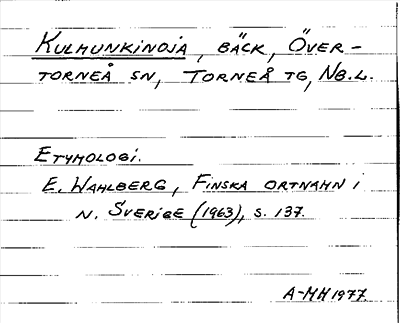 KULMUNKINOJA, BÄCK, ÖVER-
TORNEÅ SN, TORNEÅ TG, NB.L.
ETYMOLOGI.
E. WAHLBERG, FINSKA ORTNAMN i
N. SVERIGE (1963), s. 137.
A-MH 1977.